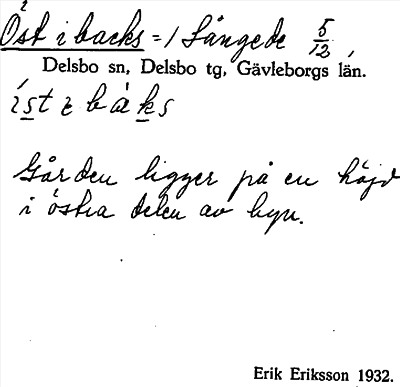 Öst i backs = 1 Långede 5/12
Delsbo sn, Delsbo tg, Gävleborgs län.
íst i bàks
Gården ligger på en höjd
i östra delen av byn.
Erik Eriksson 1932.